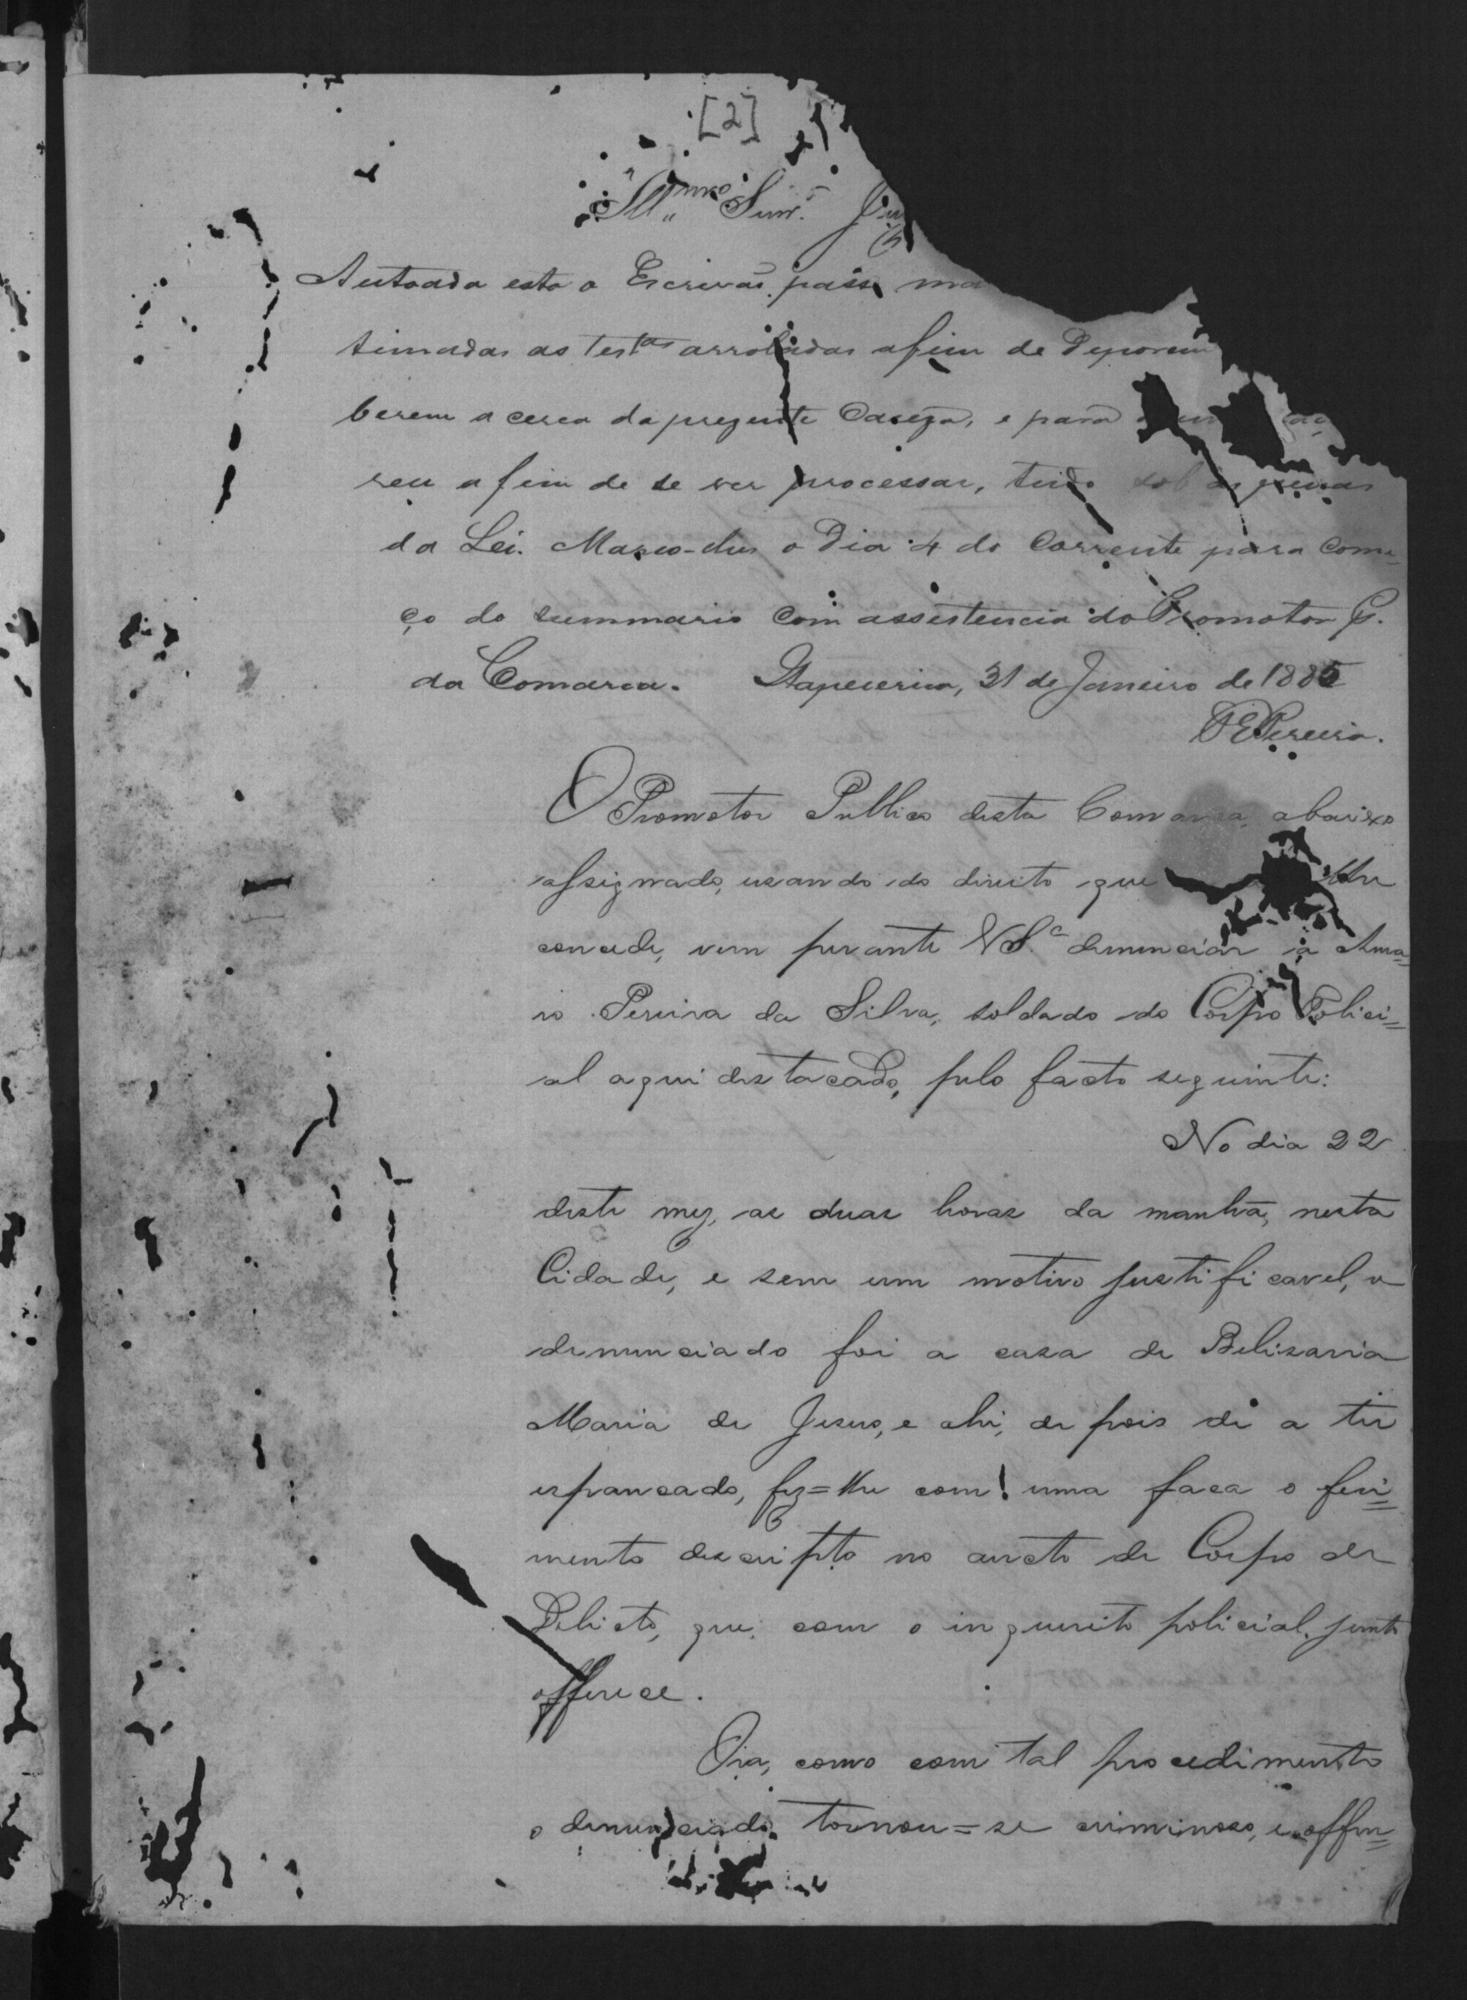 [2]
Ill.mo Snr. Ju
Autoada esta o Escrivão passe ma
timadas as test.as arroladas afim de deporem
berem a cerca da prezente Queixa, e para
reu afim de se ver processar, tudo sob as penas
da Lei. Marco-lhes o dia 4 do Corrente para come-
ço do summario com assistencia do Promotor P.
da Comarca. Itapecerica, 31 de Janeiro de 1885
Pereira.
O Promotor Publico desta Comarca, abaixo
assignado, usando do direito que lhe
concede, vem perante V S.a denunciar a Ama=
ro Pereira da Silva, soldado do Corpo Polici=
al aqui destacado, pelo facto seguinte:
No dia 22
deste mez, as duas horas da manhã, nesta
Cidade, e sem um motivo justificavel, o
denunciado foi a casa de Belizaria
Maria de Jesus, e ahi, depois de a ter
espancado, fez=lhe com uma faca o feri=
mento descripto no aucto de Corpo de
Delicto, que, com o inquerito policial, junto
offerece.
Ora, como com tal procedimento
o denunciado tornou=se criminoso, e offen=